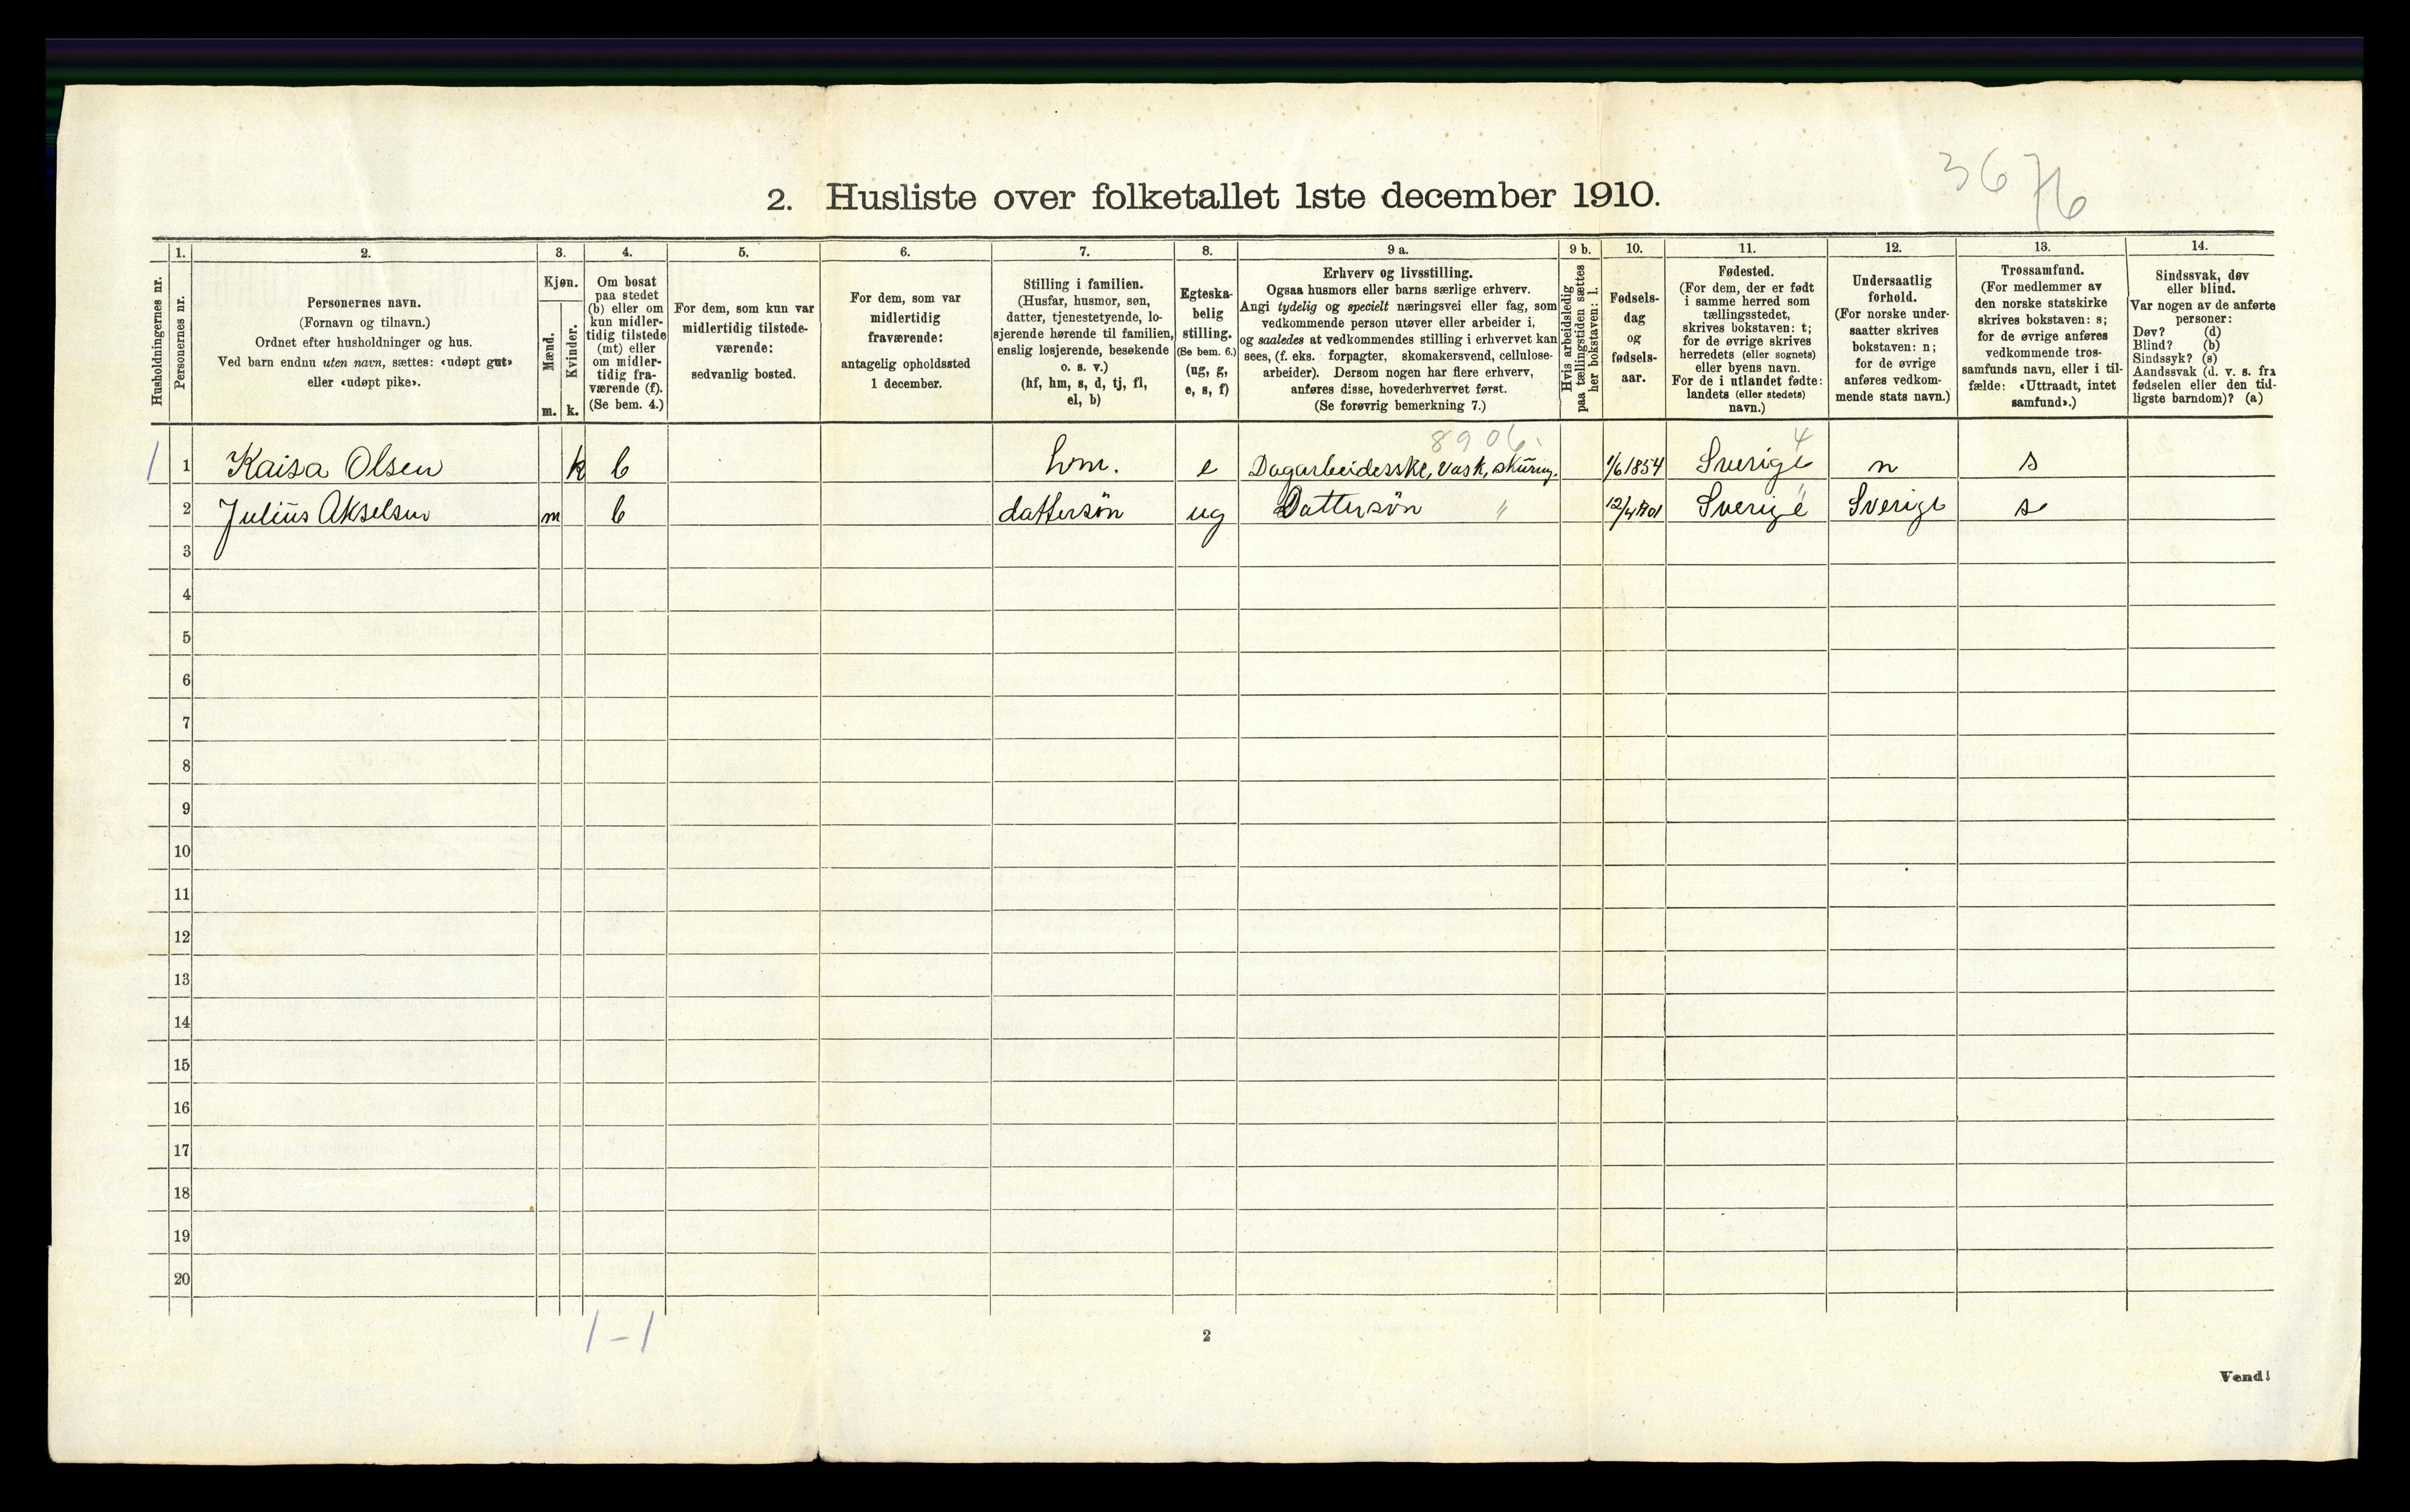 3676
2. Husliste over folketallet 1ste december 1910.
Husholdningernes nr.
1. Personernes nr.
2. Personernes navn. (Fornavn og tilnavn.) Ordnet efter husholdninger og hus. Ved barn endnu uten navn, sættes: «udøpt gut» eller «udøpt pike».
3. Kjøn. Mænd. m. Kvinder. k.
4. Om bosat paa stedet (b) eller om kun midler-tidig tilstede (mt) eller om midler-tidig fra-værende (f). (Se bem. 4.)
5. For dem, som kun var midlertidig tilstede-værende: sedvanlig bosted.
6. For dem, som var midlertidig fraværende: antagelig opholdssted 1 december.
7. Stilling i familien. (Husfar, husmor, søn, datter, tjenestetyende, lo-sjerende hørende til familien, enslig losjerende, besøkende o. s. v.) (hf, hm, s, d, tj, fl, el, b)
8. Egteska-belig stilling. (Se bem. 6.) (ug, g, e, s, f)
9 a. Erhverv og livsstilling. Ogsaa husmors eller barns særlige erhverv. Angi tydelig og specielt næringsvei eller fag, som vedkommende person utøver eller arbeider i, og saaledes at vedkommendes stilling i erhvervet kan sees, (f. eks. forpagter, skomakersvend, cellulose-arbeider). Dersom nogen har flere erhverv, anføres disse, hovederhvervet først. (Se forøvrig bemerkning 7.)
9 b. Hvis arbeidsledig paa tællingstiden sættes her bokstaven: l.
10. Fødsels-dag og fødsels-aar.
11. Fødested. (For dem, der er født i samme herred som tællingsstedet, skrives bokstaven: t; for de øvrige skrives herredets (eller sognets) eller byens navn. For de i utlandet fødte: landets (eller stedets) navn.)
12. Undersaatlig forhold. (For norske under-saatter skrives bokstaven: n; for de øvrige anføres vedkom-mende stats navn.)
13. Trossamfund. (For medlemmer av den norske statskirke skrives bokstaven: s; for de øvrige anføres vedkommende tros-samfunds navn, eller i til-fælde: «Uttraadt, intet samfund».)
14. Sindssvak, døv eller blind. Var nogen av de anførte personer: Døv? (d) Blind? (b) Sindssyk? (s) Aandssvak (d. v. s. fra fødselen eller den tid-ligste barndom)? (a)
8906. 4
1 1 Kaisa Olsen k b hm. e Dagarbeiderske, vask, skuring. 1/6 1854 Sverige n s
2 Julius Akselsen m b dattersøn ug Dattersøn " 12/4 1901 Sverige Sverige s
3
4
5
6
7
8
9
10
11
12
13
14
15
16
17
18
19
20
1 - 1
2
Vend!